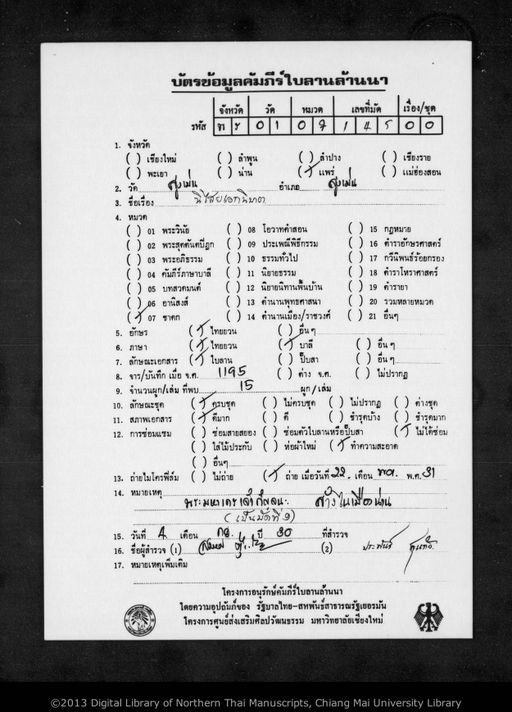 บัตรข้อมูลคัมภีร์ใบลานล้านนา
จังหวัด วัด หมวด เลขที่มัด เรื่อง/ชุด
รหัส พ ร 0 1 0 7 1 4 5 0 0
1. จังหวัด
( ) เชียงใหม่ ( ) ลำพูน ( ) ลำปาง ( ) เชียงราย
( ) พะเยา ( ) น่าน (/) แพร่ ( ) แม่ฮ่องสอน
2. วัด สูงเม่น อำเภอ สูงเม่น
3. ชื่อเรื่อง
4. หมวด
( ) 01 พระวินัย ( ) 08 โอวาทคำสอน ( ) 15 กฎหมาย
( ) 02 พระสุตตันตปิฎก ( ) 09 ประเพณีพิธีกรรม ( ) 16 ตำราอักษรศาสตร์
( ) 03 พระอภิธรรม ( ) 10 ธรรมทั่วไป ( ) 17 กวีนิพนธ์ร้อยกรอง
( ) 04 คัมภีร์ภาษาบาลี ( ) 11 นิยายธรรม ( ) 18 ตำราโหราศาสตร์
( ) 05 บทสวดมนต์ ( ) 12 นิยายนิทานพื้นบ้าน ( ) 19 ตำรายา
( ) 06 อานิสงส์ ( ) 13 ตำนานพุทธศาสนา ( ) 20 รวมหลายหมวด
(/) 07 ชาดก ( ) 14 ตำนานเมือง/ราชวงศ์ ( ) 21 อื่นๆ
5. อักษร (/) ไทยยวน ( ) อื่นๆ
6. ภาษา (/) ไทยยวน (/) บาลี ( ) อื่นๆ
7. ลักษณะเอกสาร (/) ใบลาน ( ) ปั๊บสา ( ) อื่นๆ
8. จาร/บันทึก เมื่อ จ.ศ. 1195 ( ) ต่าง จ.ศ. ( ) ไม่ปรากฏ
9. จำนวนผูก/เล่ม ที่พบ 15 ผูก/เล่ม
10. ลักษณะชุด (/) ครบชุด ( ) ไม่ครบชุด ( ) ไม่ปรากฏ ( ) ต่างชุด
11. สภาพเอกสาร (/) ดีมาก ( ) ดี ( ) ชำรุดบ้าง ( ) ชำรุดมาก
12. การซ่อมแซม ( ) ซ่อมสายสยอง ( ) ซ่อมตัวใบลานหรือปั๊บสา (/) ไม่ได้ซ่อม
( ) ใส่ไม้ประกับ ( ) ห่อผ้าใหม่ (/) ทำความสะอาด
( ) อื่นๆ
13. ถ่ายไมโครฟิล์ม ( ) ไม่ถ่าย (/) ถ่าย เมื่อวันที่ 22 เดือน พ.ค. พ.ศ. 31
14. หมายเหตุ สร้างในเมืองน่าน
(เป็นมัดที่ 9)
15. วันที่ 4 เดือน ปี 30 ที่สำรวจ
16. ชื่อผู้สำรวจ (1) (2) ประพันธ์
17. หมายเหตุเพิ่มเติม
โครงการอนุรักษ์คัมภีร์ใบลานล้านนา
โดยความอุปถัมภ์ของ รัฐบาลไทย-สหพันธ์สาธารณรัฐเยอรมัน
โครงการศูนย์ส่งเสริมศิลปวัฒนธรรม มหาวิทยาลัยเชียงใหม่
©2013 Digital Library of Northern Thai Manuscripts, Chiang Mai University Library